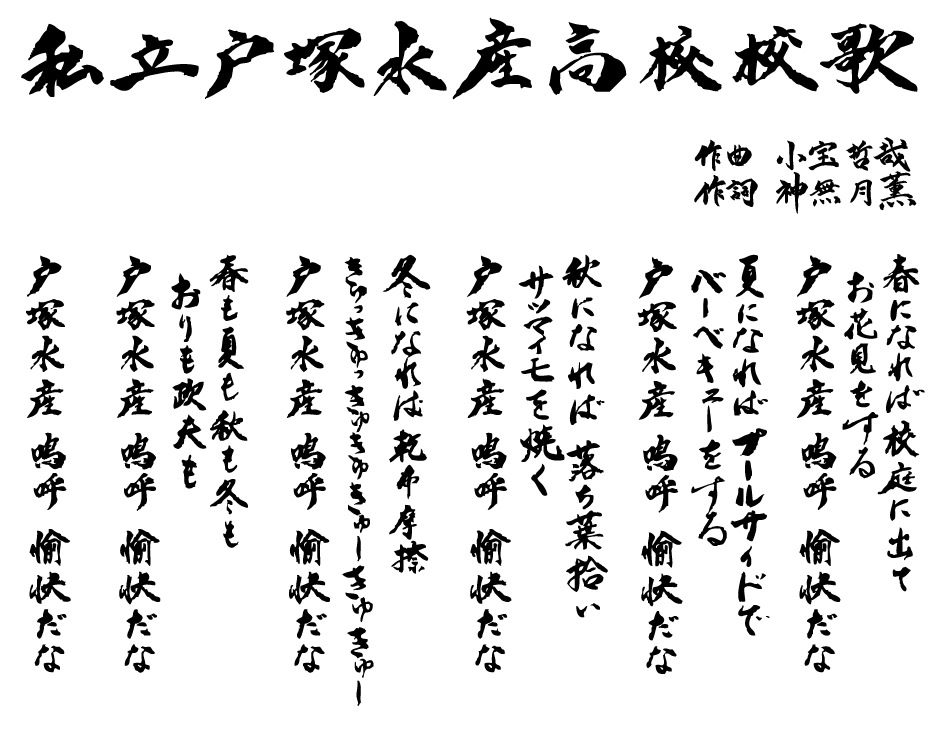 私立戸塚水産高校校歌
作曲　小宝哲哉
作詞　神無月薫
春になれば校庭に出て
お花見をする
戸塚水産 嗚呼 愉快だな
夏になればプールサイドで
バーベキューをする
戸塚水産 嗚呼 愉快だな
秋になれば 落ち葉拾い
サツマイモを焼く
戸塚水産 嗚呼 愉快だな
冬になれば乾布摩擦
きゅっきゅっきゅきゅきゅーきゅきゅー
戸塚水産 嗚呼 愉快だな
春も夏も秋も冬も
おりも政夫も
戸塚水産 嗚呼 愉快だな
戸塚水産 嗚呼 愉快だな